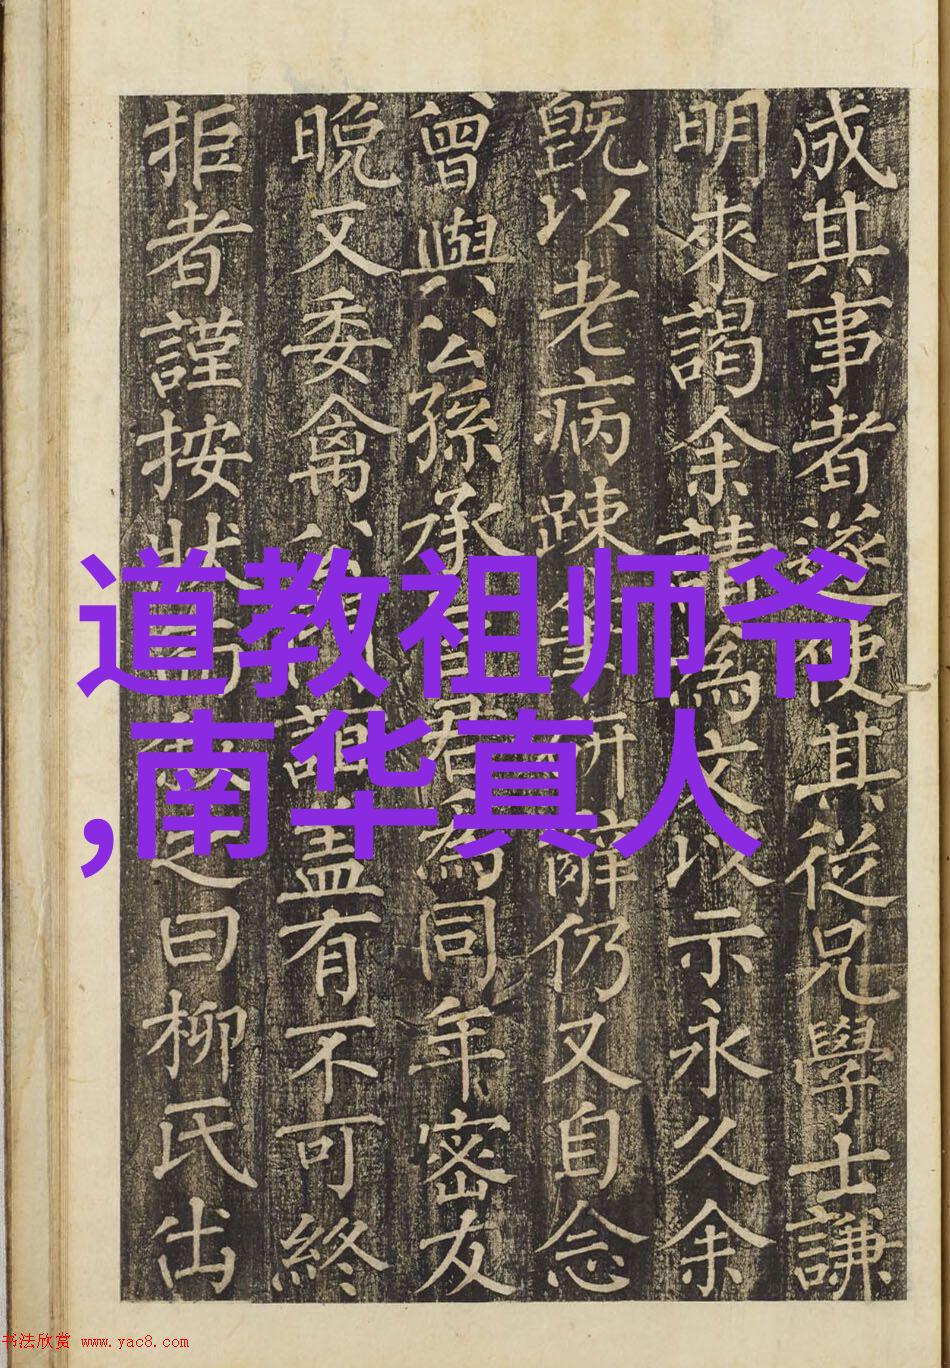 成其事者遂使其從兄學士謙
明來謁余請為文以示永久余
旣以老病踈筆研辭仍又自念
曾與公孫承旨君為同年密友
晚又委禽誼盖有不可終
拒者謹按狀之曰柳氏出
道教祖师爷
,南华真人
书法欣赏 www.yac8.com